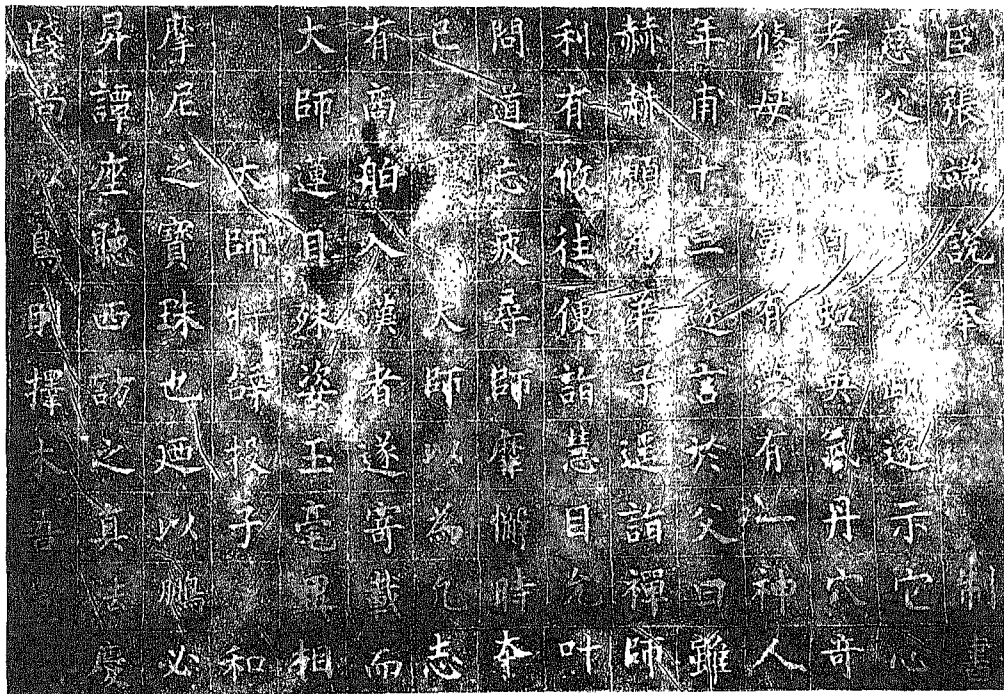 臣張端說奉制書
慈父蹤遂示它心
孝白虹英氣丹穴奇
修母有有一神人
年甫十二遂言於父曰雖
赫赫願爲弟子遥詣禪師
利有攸往便詣慧目允叶
問道忘疲尋師靡懈時本
已大師以為乞志
有商舶入漢者遂寄載而
大師蓮目殊姿玉毫異相
大師將辭投子和
摩尼之寶珠也廻以鵬必
昇譚座聽西訪之真法慶
踐尚以鳥則擇木